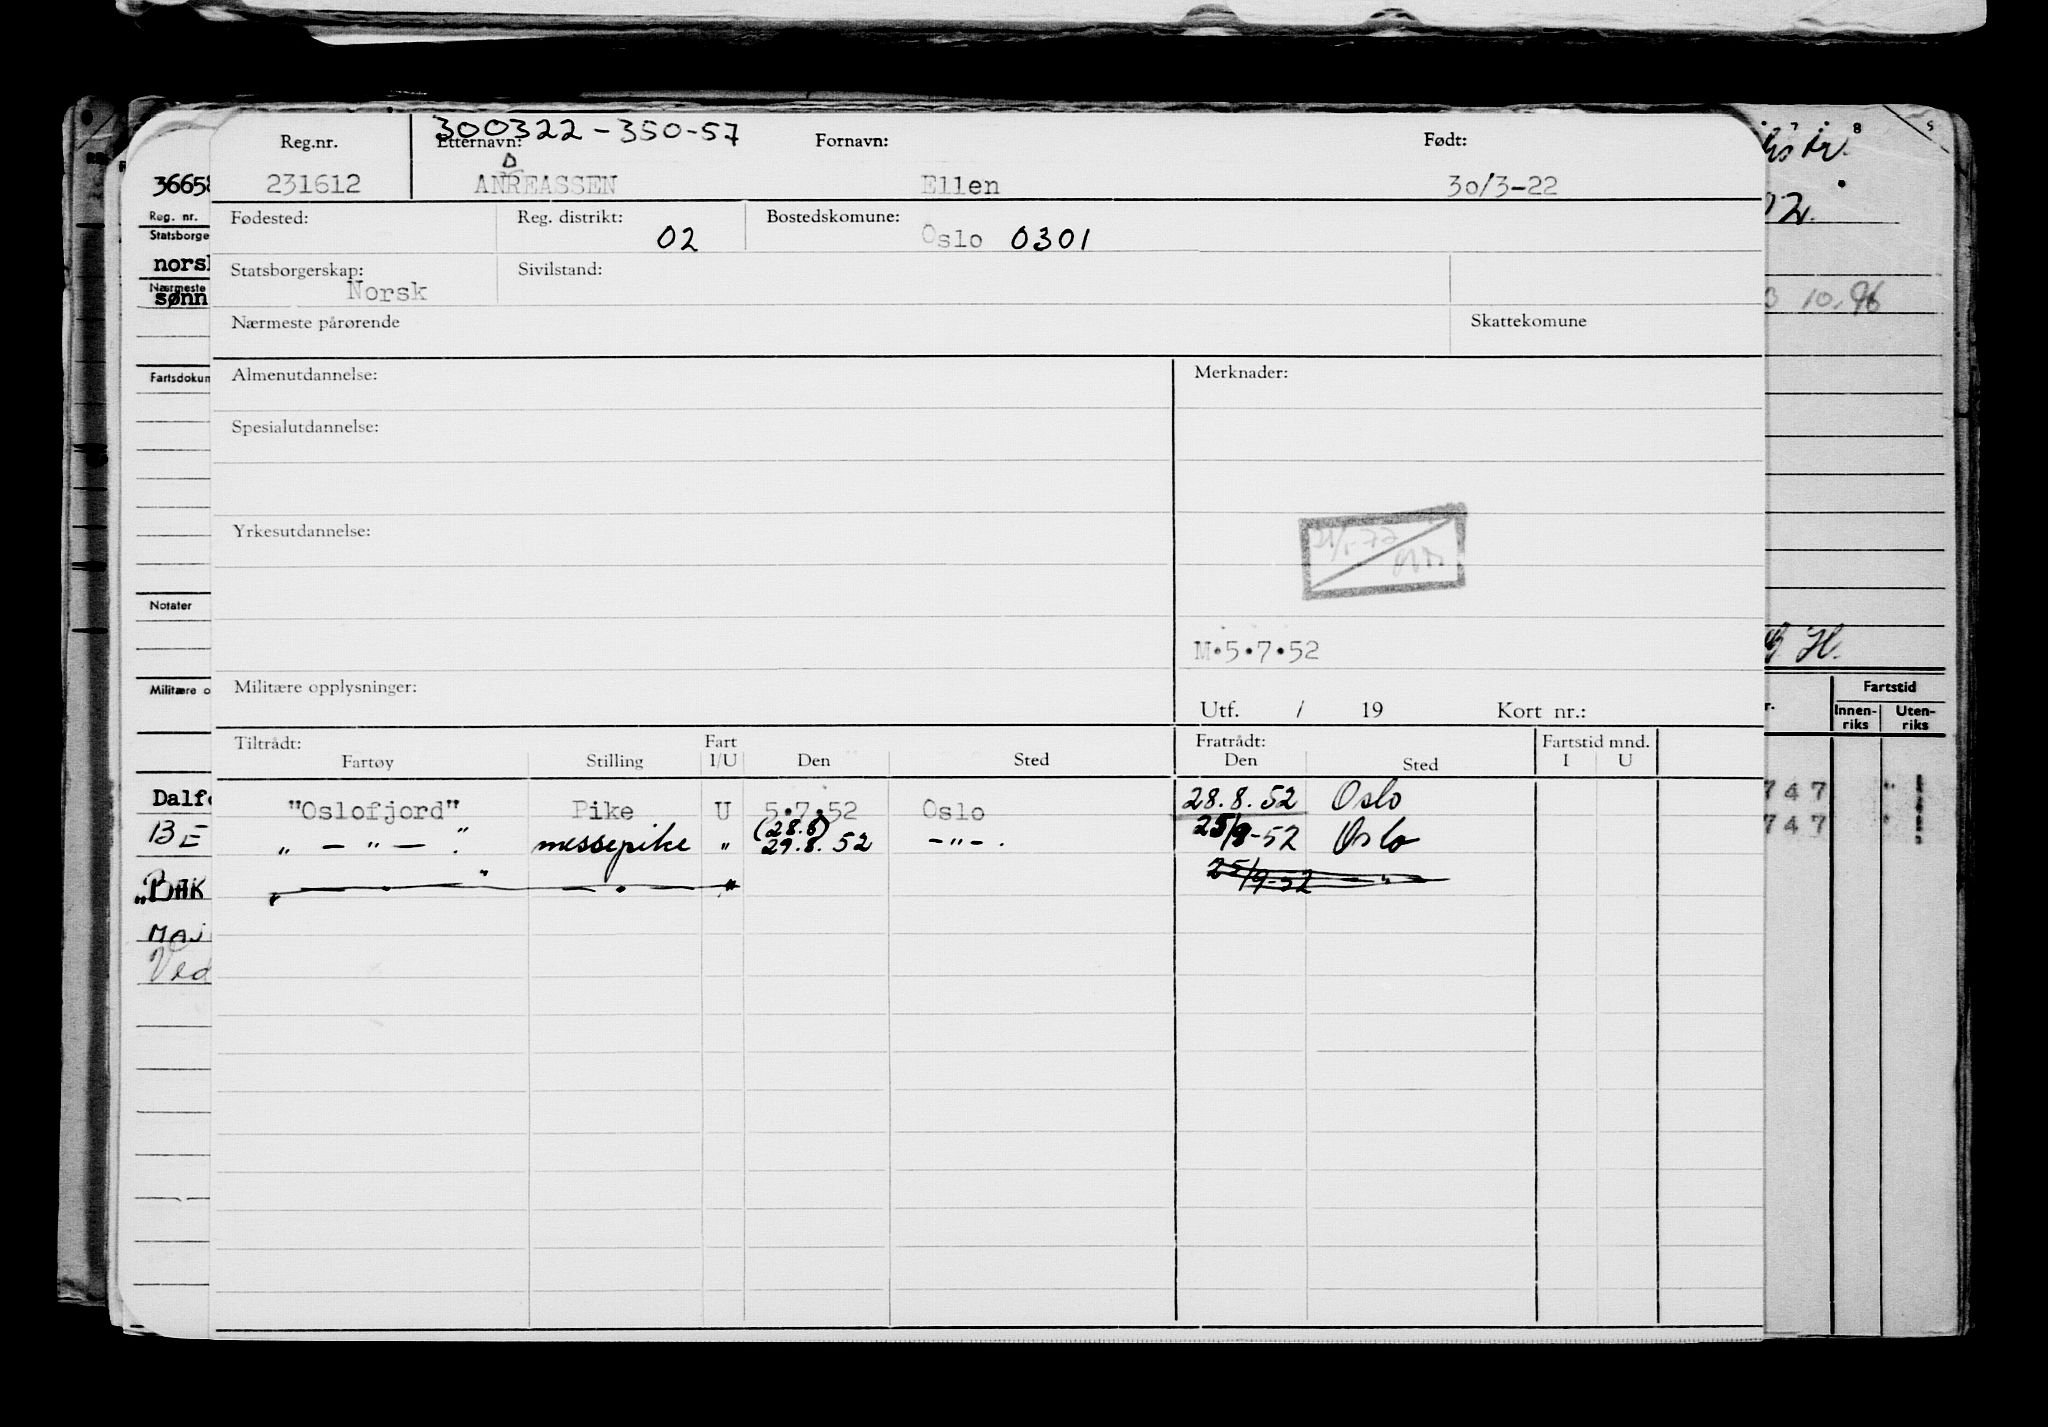 300322-350-57
Reg.nr. Etternavn: Fornavn: Født:
D
231612 ANREASSEN Ellen 30/3-22
Fødested: Reg. distrikt: Bostedskomune:
02 Oslo 0301
Statsborgerskap: Sivilstand:
Norsk
Nærmeste pårørende Skattekomune
Almenutdannelse: Merknader:
Spesialutdannelse:
Yrkesutdannelse:
M.5.7.52
Militære opplysninger:
Utf. / 19 Kort nr.:
Tiltrådt: Fart Fratrådt: Fartstid mnd.
Fartøy Stilling I/U Den Sted Den Sted I U
"Oslofjord" Pike U 5.7.52 Oslo 28.8.52 Oslo
(28.8)
" — " — " messepike " 29.8.52 -"-. 25/9-52 Oslo
25/9-52 "
3665
Reg. nr.
Statsborge
nors
Nærmeste
sønn
Fartsdokum
Notater
Militære o
Dalf
BE
MAJ
Ved
8
5
02.
10.96
H.
Fartstid
Innen-riks Uten-riks
747
747